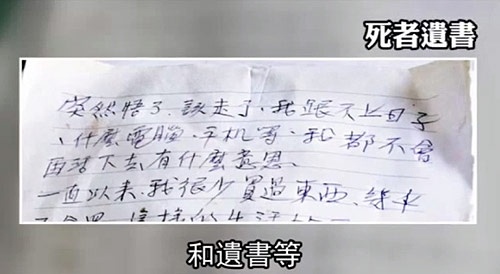 死者遺書
突然悟了、該走了、我跟不上日子
、什麼電腦、手机等、我都不會
再活下去有什麼意思、
一直以来、我很少買過東西、
這樣的生活
和遺書等